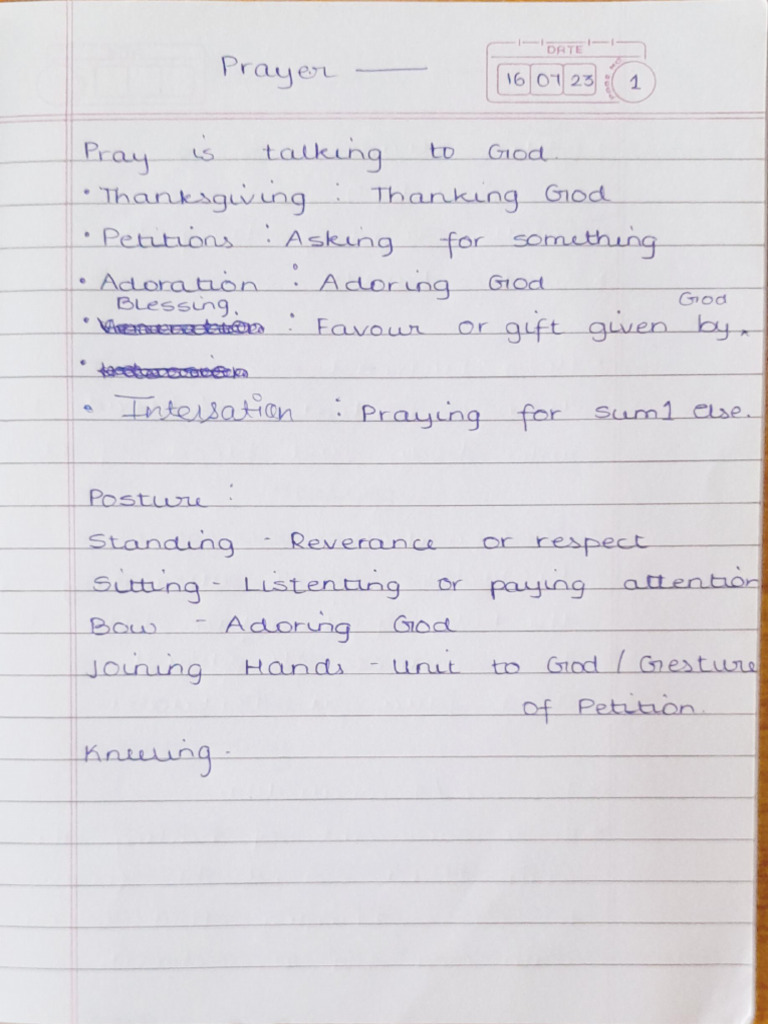 Prayer —
DATE
16 07 23 1
Pray is talking to God.
• Thanksgiving : Thanking God
• Petitions : Asking for something
• Adoration : Adoring God
Blessing. God
• : Favour or gift given by
•
• Interssation : Praying for sum1 else.
Posture :
Standing - Reverance or respect
Sitting - Listenting or paying attention
Bow - Adoring God
Joining Hands - Unit to God / Gesture
of Petition.
Kneeling -